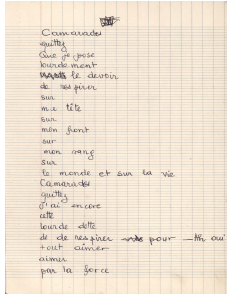 Camarades
quittez
Que je pose
lourdement
le devoir
de respirer
sur
ma tête
sur
mon front
sur
mon sang
sur
le monde et sur la vie
Camarades
quittez
j'ai encore
cette
lourde dette
de de respirer pour
tout aimer
aimer
par la force